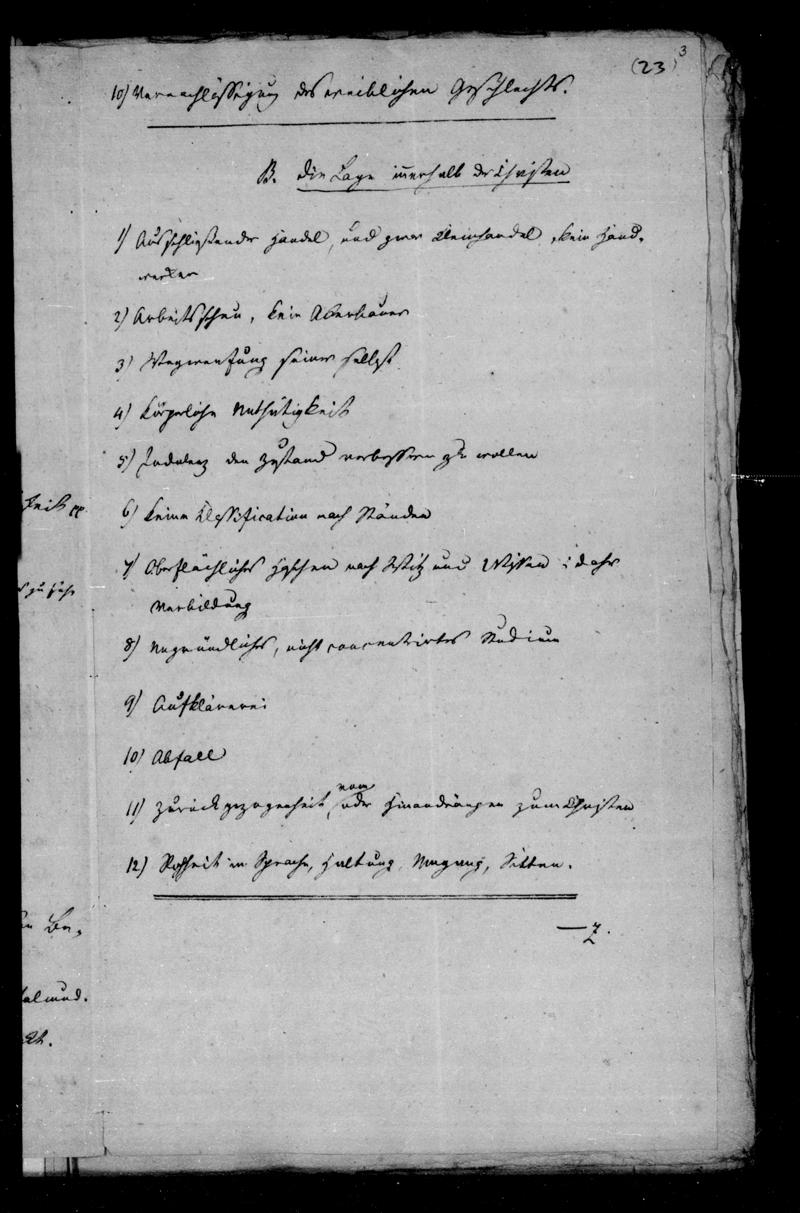 (23) 3
10) Vernachlässigung des weiblichen Geschlechts.
B. Die Lage innerhalb der Christen
1) Ausschließender Handel, und zwar Kleinhandel, kein Hand-
werker
2) Arbeitsscheu, kein Ackerbauer
3) Wegwerfung seiner selbst
4) Körperliche Unthätigkeit
5) Indolenz den Zustand verbessern zu wollen
6) Keine Klassification nach Ständen
7) Oberflächliches Haschen nach Witz und Wissen; daher
Verbildung
8) Ungründliches, nicht concentrirtes Studium
9) Aufklärerei
10) Abfall
11) Zurückgezogenheit vom oder Hinandrängen zum Christen
12) Rohheit in Sprache, Haltung, Umgang, Sitten.
— Z.
keit pp
zu
Be-
almud.